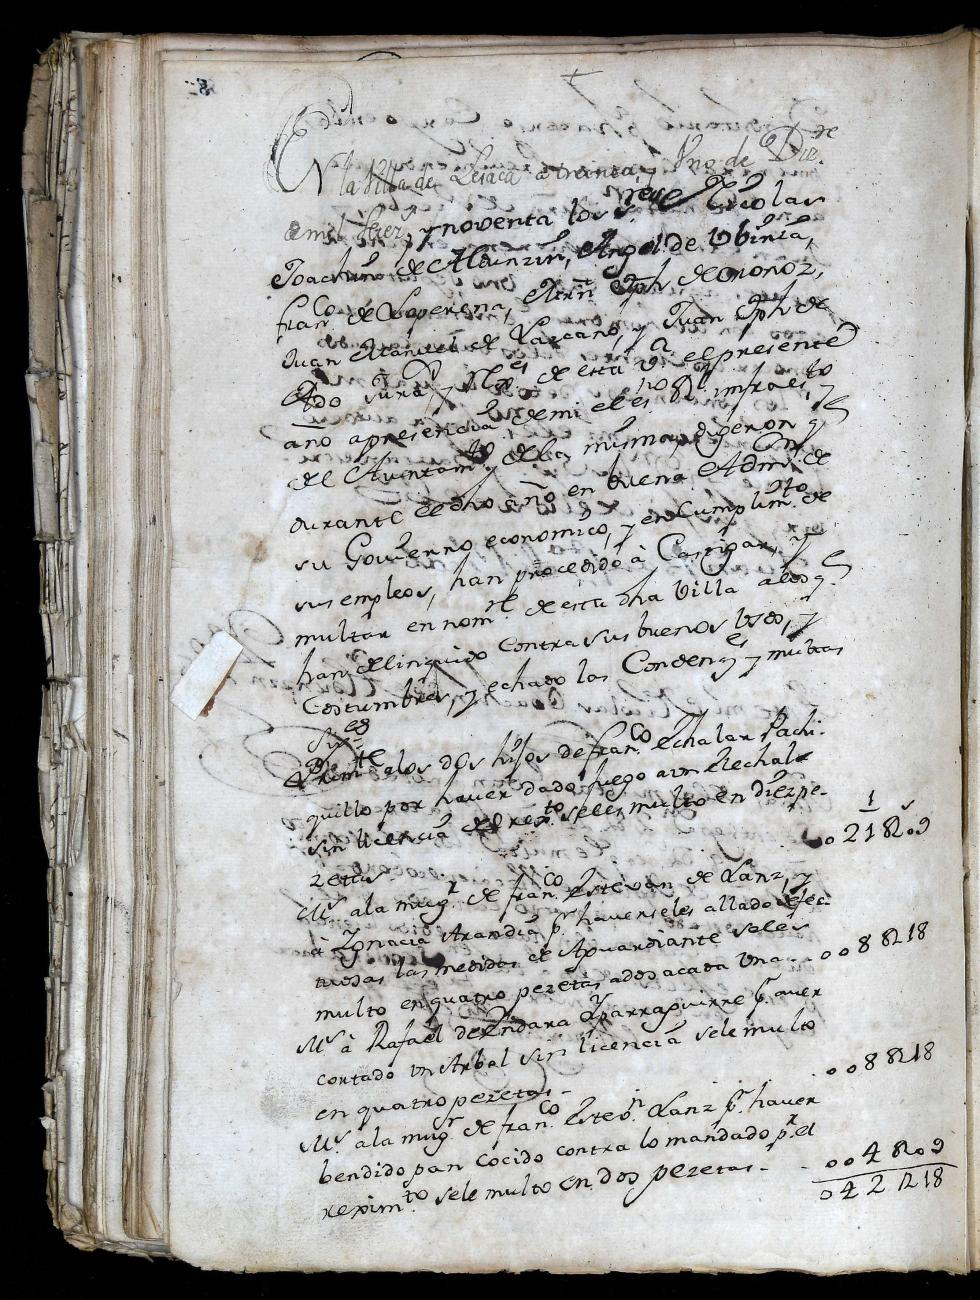 En la Villa de Lesaca a treinta, y Uno de Dizre
de mil setezs y noventa los Sres Nicolas
Joachin de Aldunzin, Angel de Ubinia,
Franco de Laperena, Martn Jph de Ordnoz,
Juan Manuel de Lazcano, y Juan Jph de
Jura, y Rexes de esta Va el presente
año apresencia de mi el esno Rl infraesto y
del Aiuntamto de la misma, digeron q
durante el dho año en buena Admon de
su Govierno economico, y en Cumplimto de
sus empleos, han procedido à Castigar, y
multar en nomre de esta dha Villa alos q
han delinquido contra sus buenos Usos, y
Costumbres, y echado las Condenes y multas
sigtes
Primte alos dos hijos de Franco Echalar Pachi-
quillo por haver dado fuego a un Elechal
sin licencia del rexto seles multo en diez pe-
zetas .. 021 R 09
Ms ala mugr de Franco Estevan de Lanz, y
à Ignacia Arandia pr haverseles allado defec-
tuosas las medidas de Aguardiante seles
multo en quatro pezetas ados acada Una .. 008 R 18
Ms à Rafael de Endara Yparraguirre pr aver
cortado un Arbol sin licencia sele multo
en quatro pezetas - . 008 R 18
Ms ala mugr de Franco Estevn Lanz pr haver
bendido pan cocido contra lo mandado pr el
reximto sele multo en dos pezetas - . 004 R 09
042 R 18